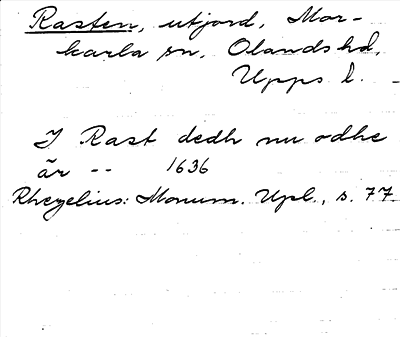 Rasten, utjord, Mor-
karla sn, Olands hd,
Upps l.
I Rast dedh nu odhe
är -- 1636
Rhezelius: Monum. Upl., s. 77.